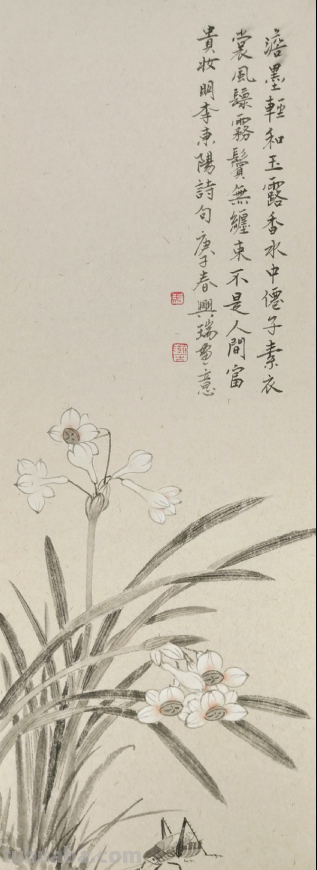 澹墨輕和玉露香水中僊子素衣
裳風鬟霧鬢無纏束不是人間富
貴妝明李東陽詩句庚子春興瑞畫意